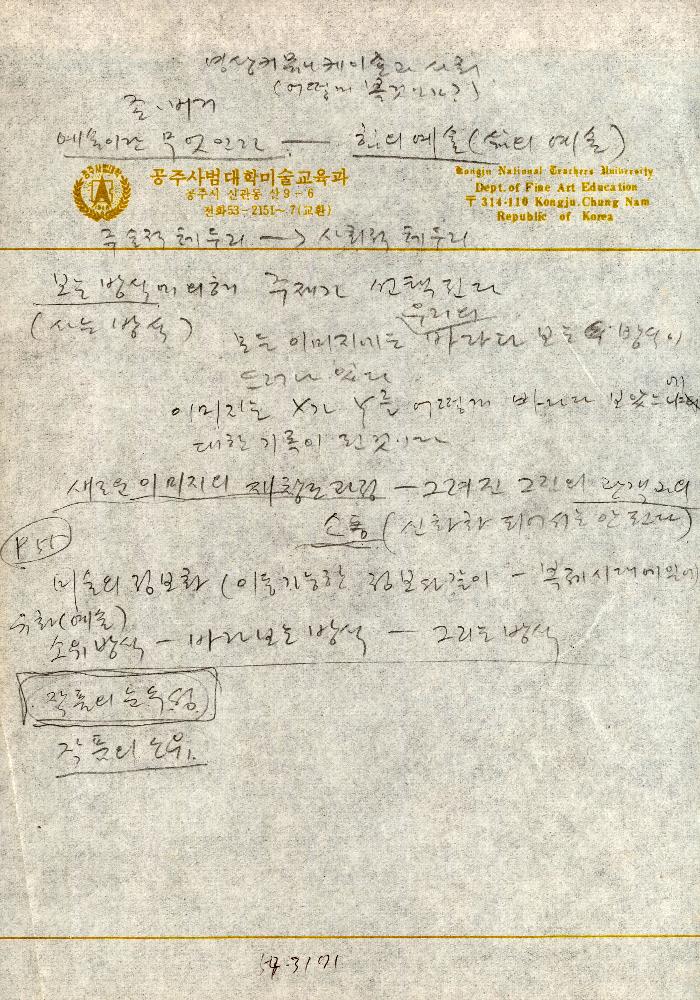 영상커뮤니케이션과 사회
(어떻게 볼것인가?)
존.버거
예술이란 무엇인가 — 힘의 예술(삶의 예술)
공주사범대학미술교육과
공주시 신관동 산 9-6
전화53-2151~7(교환)
Kongju National Teachers University
Dept. of Fine Art Education
〒 314-110 Kongju. Chung Nam
Republic of Korea
주술적 테두리 → 사회적 테두리
보는 방식에 의해 주제가 선택된다
(사는 방식)
우리가
모든 이미지에는 바라다 보는 방식이
드러나 있다
이미지는 X가 Y를 어떻게 바라다 보았는가에
대한 기록이 된것이다
새로운 이미지의 재창조과정 — 그려진 그림의 관객과의
소통 (신화화 되어서는 안된다)
P 55
미술의 정보화 (이동가능한 정보와같이 — 복제시대에있어
유화(예술)
소위 방식 — 바라보는 방식 — 그리는 방식
작품의 눈독성
작품의 소유.